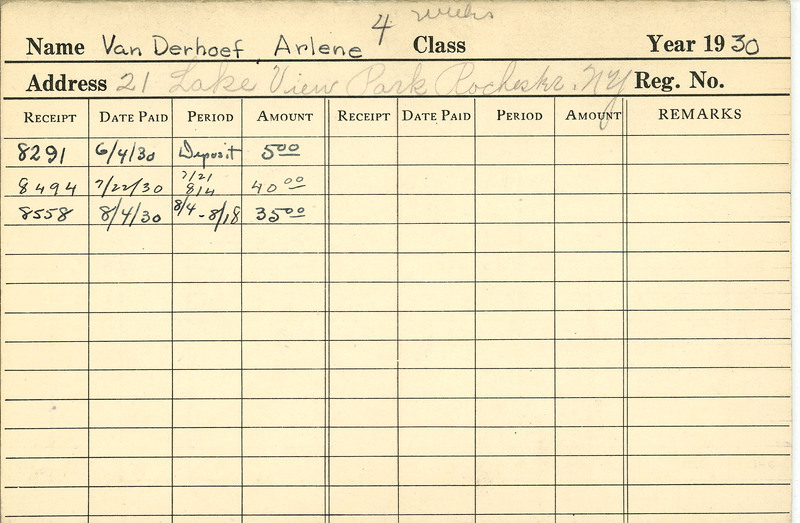 4 weeks
Name Van Derhoef, Arlene Class Year 1930
Address 21 Lake View Park Rochester, NY Reg. No.
RECEIPT DATE PAID PERIOD AMOUNT RECEIPT DATE PAID PERIOD AMOUNT REMARKS
8291 6/4/30 Deposit 5 00
7/21
8494 7/22/30 8/4 40 00
8558 8/4/30 8/4-8/18 35 00